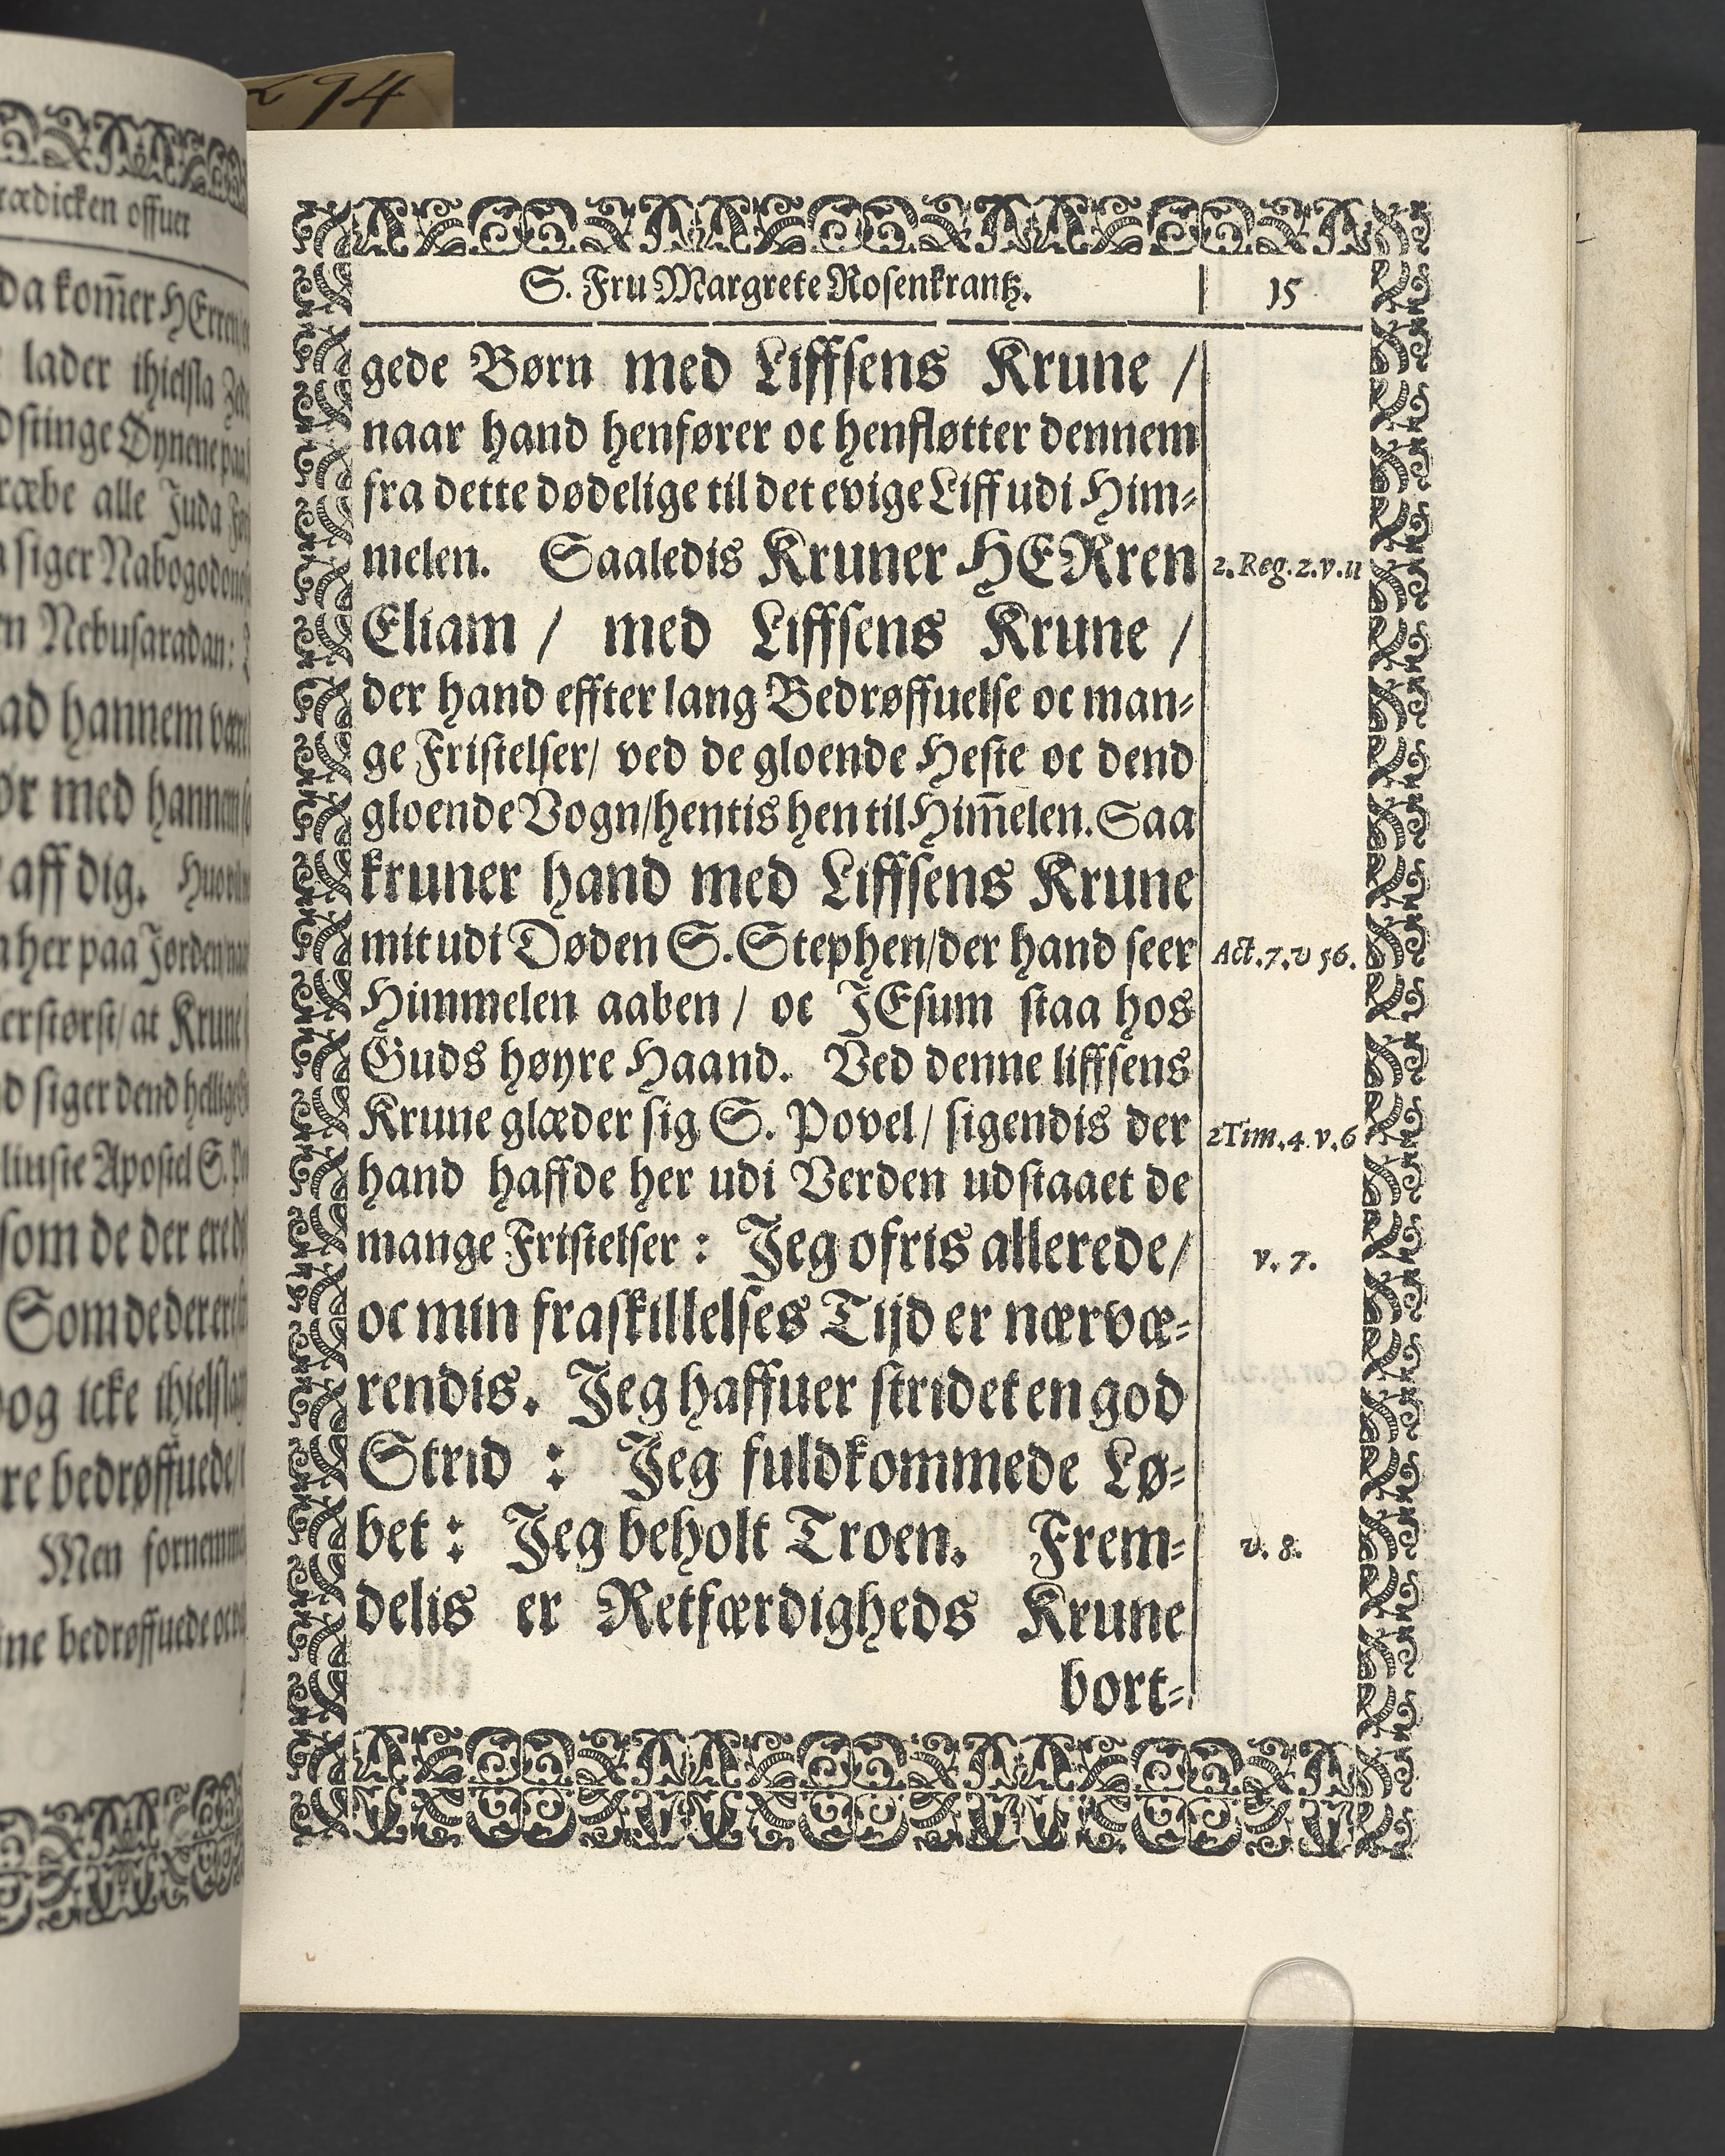 294
rædicken offuer
da kom̃er HErren
lader ihielsla
dstinge Øynene paa
ræbe alle Juda
siger Nabogodono
en Nebusaradan:
ad hannem
ør med hannem
aff dig.
her paa Jorden
størst/ at Krune
d siger dend hellige
liuste Apostel S.
som de der ere
Som de der ere
og icke ihielslag
re bedrøffuede/
Men fornemme
ine bedrøffuede oc
S. Fru Margrete Rosenkrantz.
15
gede Børn med Liffsens Krune /
naar hand henfører oc henfløtter dennem
fra dette dødelige til det evige Liff udi Him-
melen. Saaledis Kruner HERren
2. Reg. 2. v. 11
Eliam / med Liffsens Krune /
der hand effter lang Bedrøffuelse oc man-
ge Fristelser/ ved de gloende Heste oc dend
gloende Vogn/hentis hen til Him̃elen. Saa
kruner hand med Liffsens Krune
mit udi Døden S. Stephen/der hand seer
Act. 7. v 56.
Himmelen aaben / oc JEsum staa hos
Guds høyre Haand. Ved denne liffsens
Krune glæder sig S. Povel/ sigendis der
2Tim. 4. v. 6
hand haffde her udi Verden udstaaet de
mange Fristelser : Jeg ofris allerede/
v. 7.
oc min fraskillelses Tijd er nærvæ-
rendis. Jeg haffuer stridet en god
Strid : Jeg fuldkommede Lø-
bet : Jeg beholt Troen. Frem-
v. 8.
delis er Retfærdigheds Krune
bort-